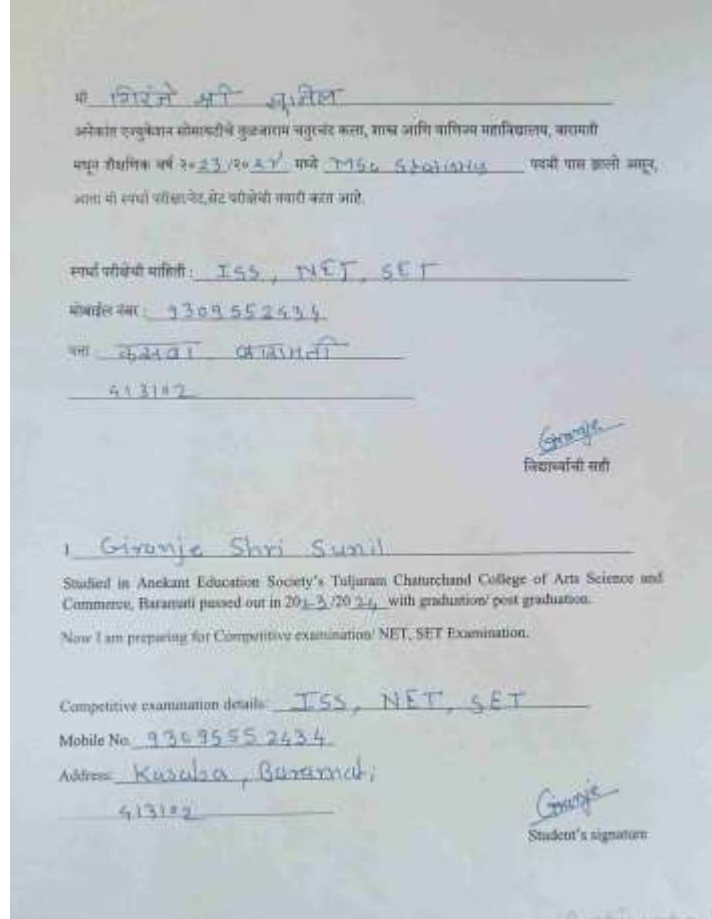 मी गिरंजे श्री सुनिल
अनेकांत एज्युकेशन सोसायटीचे तुळजाराम चतुरचंद कला, शास्त्र आणि वाणिज्य महाविद्यालय, बारामती
मधून शैक्षणिक वर्ष २०23/२०24 मध्ये MSc Statistics पदवी पास झालो असून,
आता मी स्पर्धा परीक्षा/नेट,सेट परीक्षेची तयारी करत आहे.
स्पर्धा परीक्षेची माहिती : ISS, NET, SET
मोबाईल नंबर : 9309552434
पत्ता कसबा बारामती
413102
Giranje
विद्यार्थ्याची सही
I Giranje Shri Sunil
Studied in Anekant Education Society's Tuljaram Chaturchand College of Arts Science and
Commerce, Baramati passed out in 2023/2024 with graduation/ post graduation.
Now I am preparing for Competitive examination/ NET, SET Examination.
Competitive examination details: ISS, NET, SET
Mobile No. 93095552434
Address: Kasaba, Baramati
413102
Giranje
Student's signature